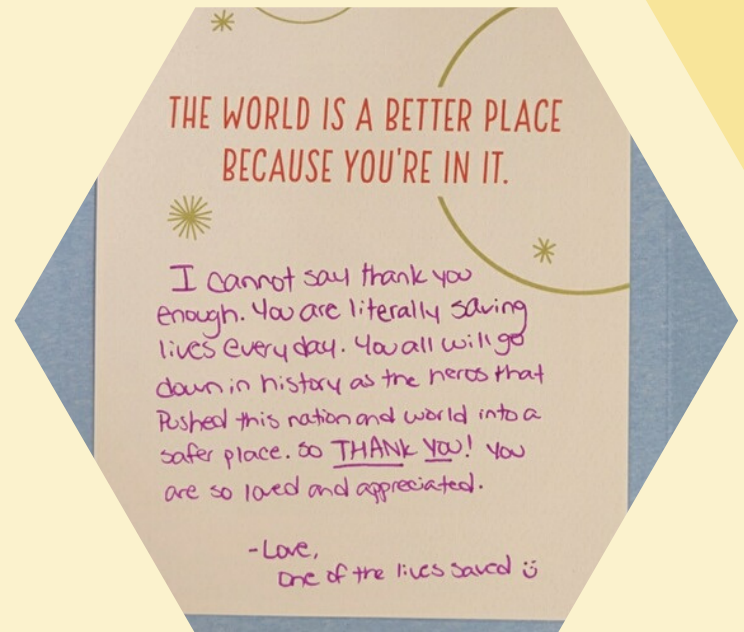 THE WORLD IS A BETTER PLACE
BECAUSE YOU'RE IN IT.
I cannot say thank you
enough. You are literally saving
lives every day. You all will go
down in history as the heros that
Pushed this nation and world into a
safer place. So THANK YOU! You
are so loved and appreciated.
-Love,
One of the lives saved ü